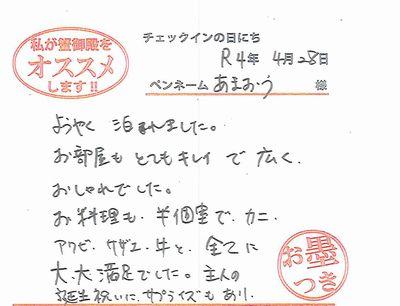 私が蟹御殿を
オススメ
します!!
チェックインの日にち
R4年 4月28日
ペンネーム あまおう 様
ようやく 泊まれました。
お部屋も とてもキレイ で 広く、
おしゃれでした。
お料理も、半個室で、カニ、
アワビ、サザエ、牛と、全てに
大、大満足でした。主人の
誕生祝いに、サプライズもあり、
お墨
つき